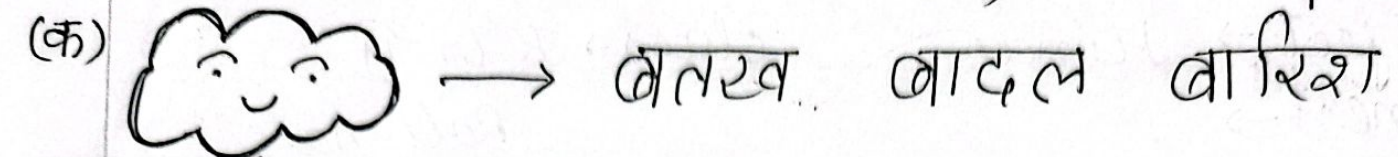 (क) → बतख बादल बारिश